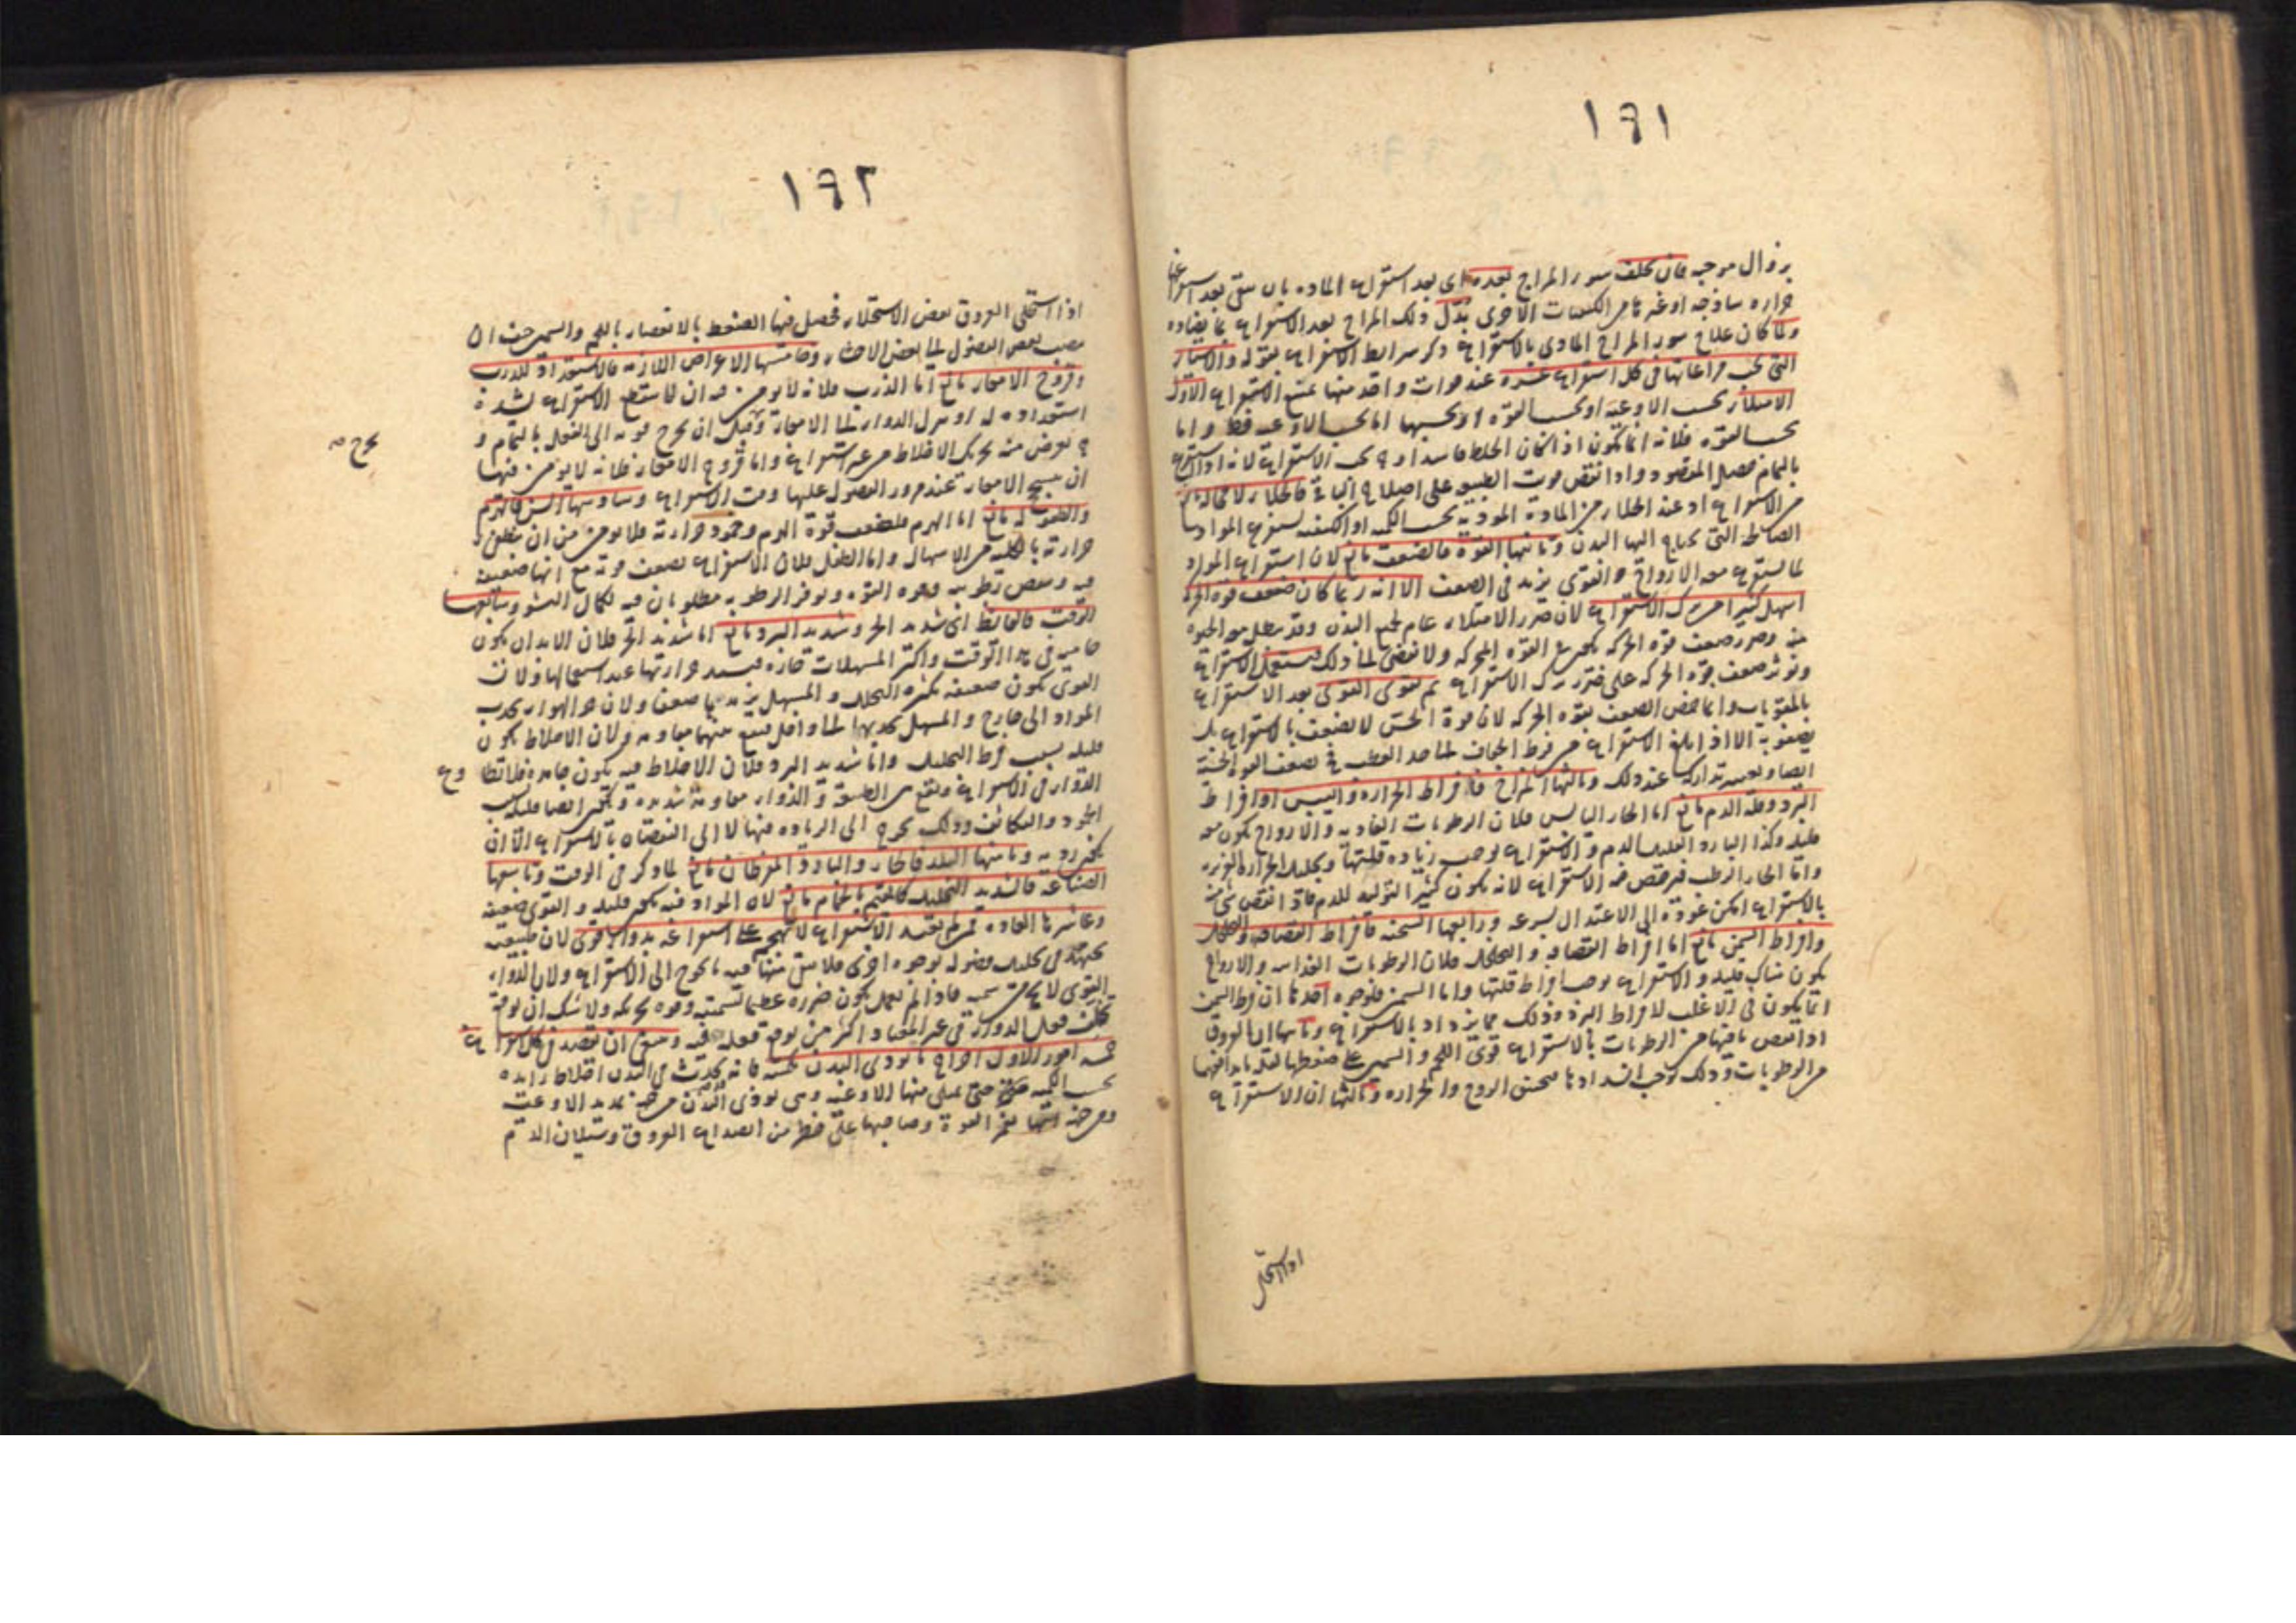 ١٩١
بزوال موجبه فان تخلف سوء المزاج بعده اى بعد استفراغ المادة بان يبقى بعد استفراغها
حرارة ساذجة او غيرها من الكيفيات الاخرى بدل ذلك المزاج بعد الاستفراغ بما يضاده
ولما كان علاج سوء المزاج المادى بالاستفراغ ذكر شرايط الاستفراغ بقوله والاشياء
التى يجب مراعاتها فى كل استفراغ عشرة عند فوات واحد منها يمتنع الاستفراغ الاول
الامتلاء بحسب الاوعية او بحسب القوة او بحسبهما اما بحسب الاوعية فقط واما
بحسب القوة فلانه انما يكون اذا كان الخلط فاسدا و ح يجب الاستفراغ لانه اذا استفرغ
بالتمام حصل المقصود واذا انتقص قويت الطبيعة على اصلاح الباقى فالخلاء لا محالة مانع
من الاستفراغ اذ عند الخلاء من المادة الموذية بحسب الكم او الكيف يستفرغ المواد
الصالحة التى يحتاج اليها البدن وثانيها القوة فالضعف مانع لان استفراغ المواد
لما يستفرغ معه الارواح والقوى يزيد فى الضعف الا انه ربما كان ضعف قوة الحركة
اسهل كثيرا من ترك الاستفراغ لان ضرر الامتلاء عام لجميع البدن وقد يبطل معه الحيوة
منه وضرر ضعف قوة الحركة يختص بالقوة المحركة ولا يفضى الى ذلك فيستعمل الاستفراغ
ونوثر ضعف قوة الحركة على ضرر ترك الاستفراغ ثم نقوى القوى بعد الاستفراغ
بالمقويات وانما خص الضعف بقوة الحركة لان قوة الحس لا يضعف بالاستفراغ بل
يضعف به الا اذا بلغ الاستفراغ من فرط الجفاف الى حد العطب فح يضعف القوة الحسية
ايضا ويعسر تداركه عند ذلك وثالثها المزاج فافراط الحرارة واليبس او افراط
البرد وقلة الدم مانع اما الحار اليابس فلان الرطوبات الغاذية والارواح يكون معه
قليلة وكذا البارد القليل الدم والاستفراغ يوجب زيادة قلتها وتحليل الحرارة الغريزية
واما الحار الرطب فيرخص فيه الاستفراغ لانه يكون كثير التوليد للدم فاذا انتقص شئ منه
بالاستفراغ امكن عوده الى الاعتدال بسرعة ورابعها السحنة فافراط القضافة والتخلخل
وافراط السمن مانع اما افراط القضافة والتخلخل فلان الرطوبات الغذائية والارواح
يكون هناك قليلة والاستفراغ يوجب افراط قلتها واما السمن فلوجوه احدها ان فرط السمن
انما يكون فى الاغلب لافراط البرد وذلك مما يزداد بالاستفراغ وثانيها ان العروق
اذا انتقص ما فيها من الرطوبات بالاستفراغ قوى اللحم والسمين على ضغطها لفقد ما يدافعها
من الرطوبات وذلك يوجب انسدادها فيحتقن الروح والحرارة وثالثها ان الاستفراغ
اذا استخلى
١٩٢
اذا استخلى العروق بعض الاستخلاء فحصل فيها الضغط بالانعصار باللحم والسمين خيف ان
يصب بعض الفضول الى بعض الاحشاء وخامسها الاعراض اللازمة فالاستعداد للذرب
وقروح الامعاء مانع اما الذرب فلانه لا يومن فيه ان لا ينقطع الاستفراغ لشدة
استعداده له او ينزل الدواء الى الامعاء قبل ان يخرج قوته الى الفعل بالتمام و
ح يعرض منه تحريك الاخلاط من غير استفراغ واما قروح الامعاء فلانه لا يومن فيها
ان يسحج الامعاء عند مرور الفضول عليها وقت الاستفراغ وسادسها السن فالهرم
والطفولة مانع اما الهرم فلضعف قوة الهرم وخمود حرارته فلا يومن من ان ينطفئ
حرارته بالكلية من الاسهال واما الطفل فلان الاستفراغ يضعف قوته مع انها ضعيفة
فيه وينقص رطوبته وهذه القوة وتوفر الرطوبة مطلوبان فيه لكمال النشو وسابعها
الوقت فالقائظ اى شديد الحر وشديد البرد مانع اما شديد الحر فلان الابدان يكون
حامية فى هذا الوقت واكثر المسهلات حارة فيشتد حرارتها عند استعمالها ولان
القوى يكون ضعيفة لكثرة التحليل والمسهل يزيدها ضعفا ولان حر الهواء يجذب
المواد الى خارج والمسهل يجذبها الى داخل فيقع بينهما مقاومة ولان الاخلاط يكون
قليلة بسبب فرط التحليل واما شديد البرد فلان الاخلاط فيه يكون جامدة فلا تطا وع
الدواء فى الاستفراغ ويقع بين الطبيعة والدواء مقاومة شديدة ويكون ايضا قليلة بسبب
الجمود والتكاثف وذلك يحوج الى الزيادة فيها لا الى النقصان بالاستفراغ الا ان
يكون ردية وثامنها البلد فالحار والبارد المفرطان مانع لما ذكر فى الوقت وتاسعها
الصناعة فالشديدة التحليل كالقيم بالحمام مانع لان المواد فيه يكون قليلة والقوى ضعيفة
وعاشرها العادة فمن لم يعتد الاستفراغ لا يهجم على استفراغه بدواء قوى لان طبيعته
تجتهد فى تحليل فضوله بوجوه اخرى فلا يبقى منها فيه ما يحوج الى الاستفراغ ولان الدواء
القوى لا يخ عن سمية فاذا لم يعمل يكون ضرره عظيما لسميته وقوة تحريكه ولا شك ان توقع
تخلف فعل الدواء فى غير المعتاد اكثر من توقع فعله فيه وينبغى ان يقصد فى كل استفراغ
خمسة امور الاول اخراج ما يوذى البدن بكميته فانه يحدث فى البدن اخلاط زايدة
بحسب الكمية حتى يمتلى منها الاوعية وهى توذى البدن من جهة تمديد الاوعية
ومن جهة انها تغمر القوة وصاحبها على خطر من انصداع العروق وسيلان الدم